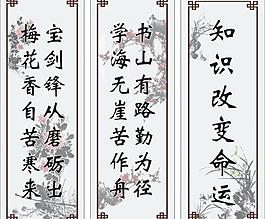 知识改变命运
书山有路勤为径
学海无崖苦作舟
宝剑锋从磨砺出
梅花香自苦寒来